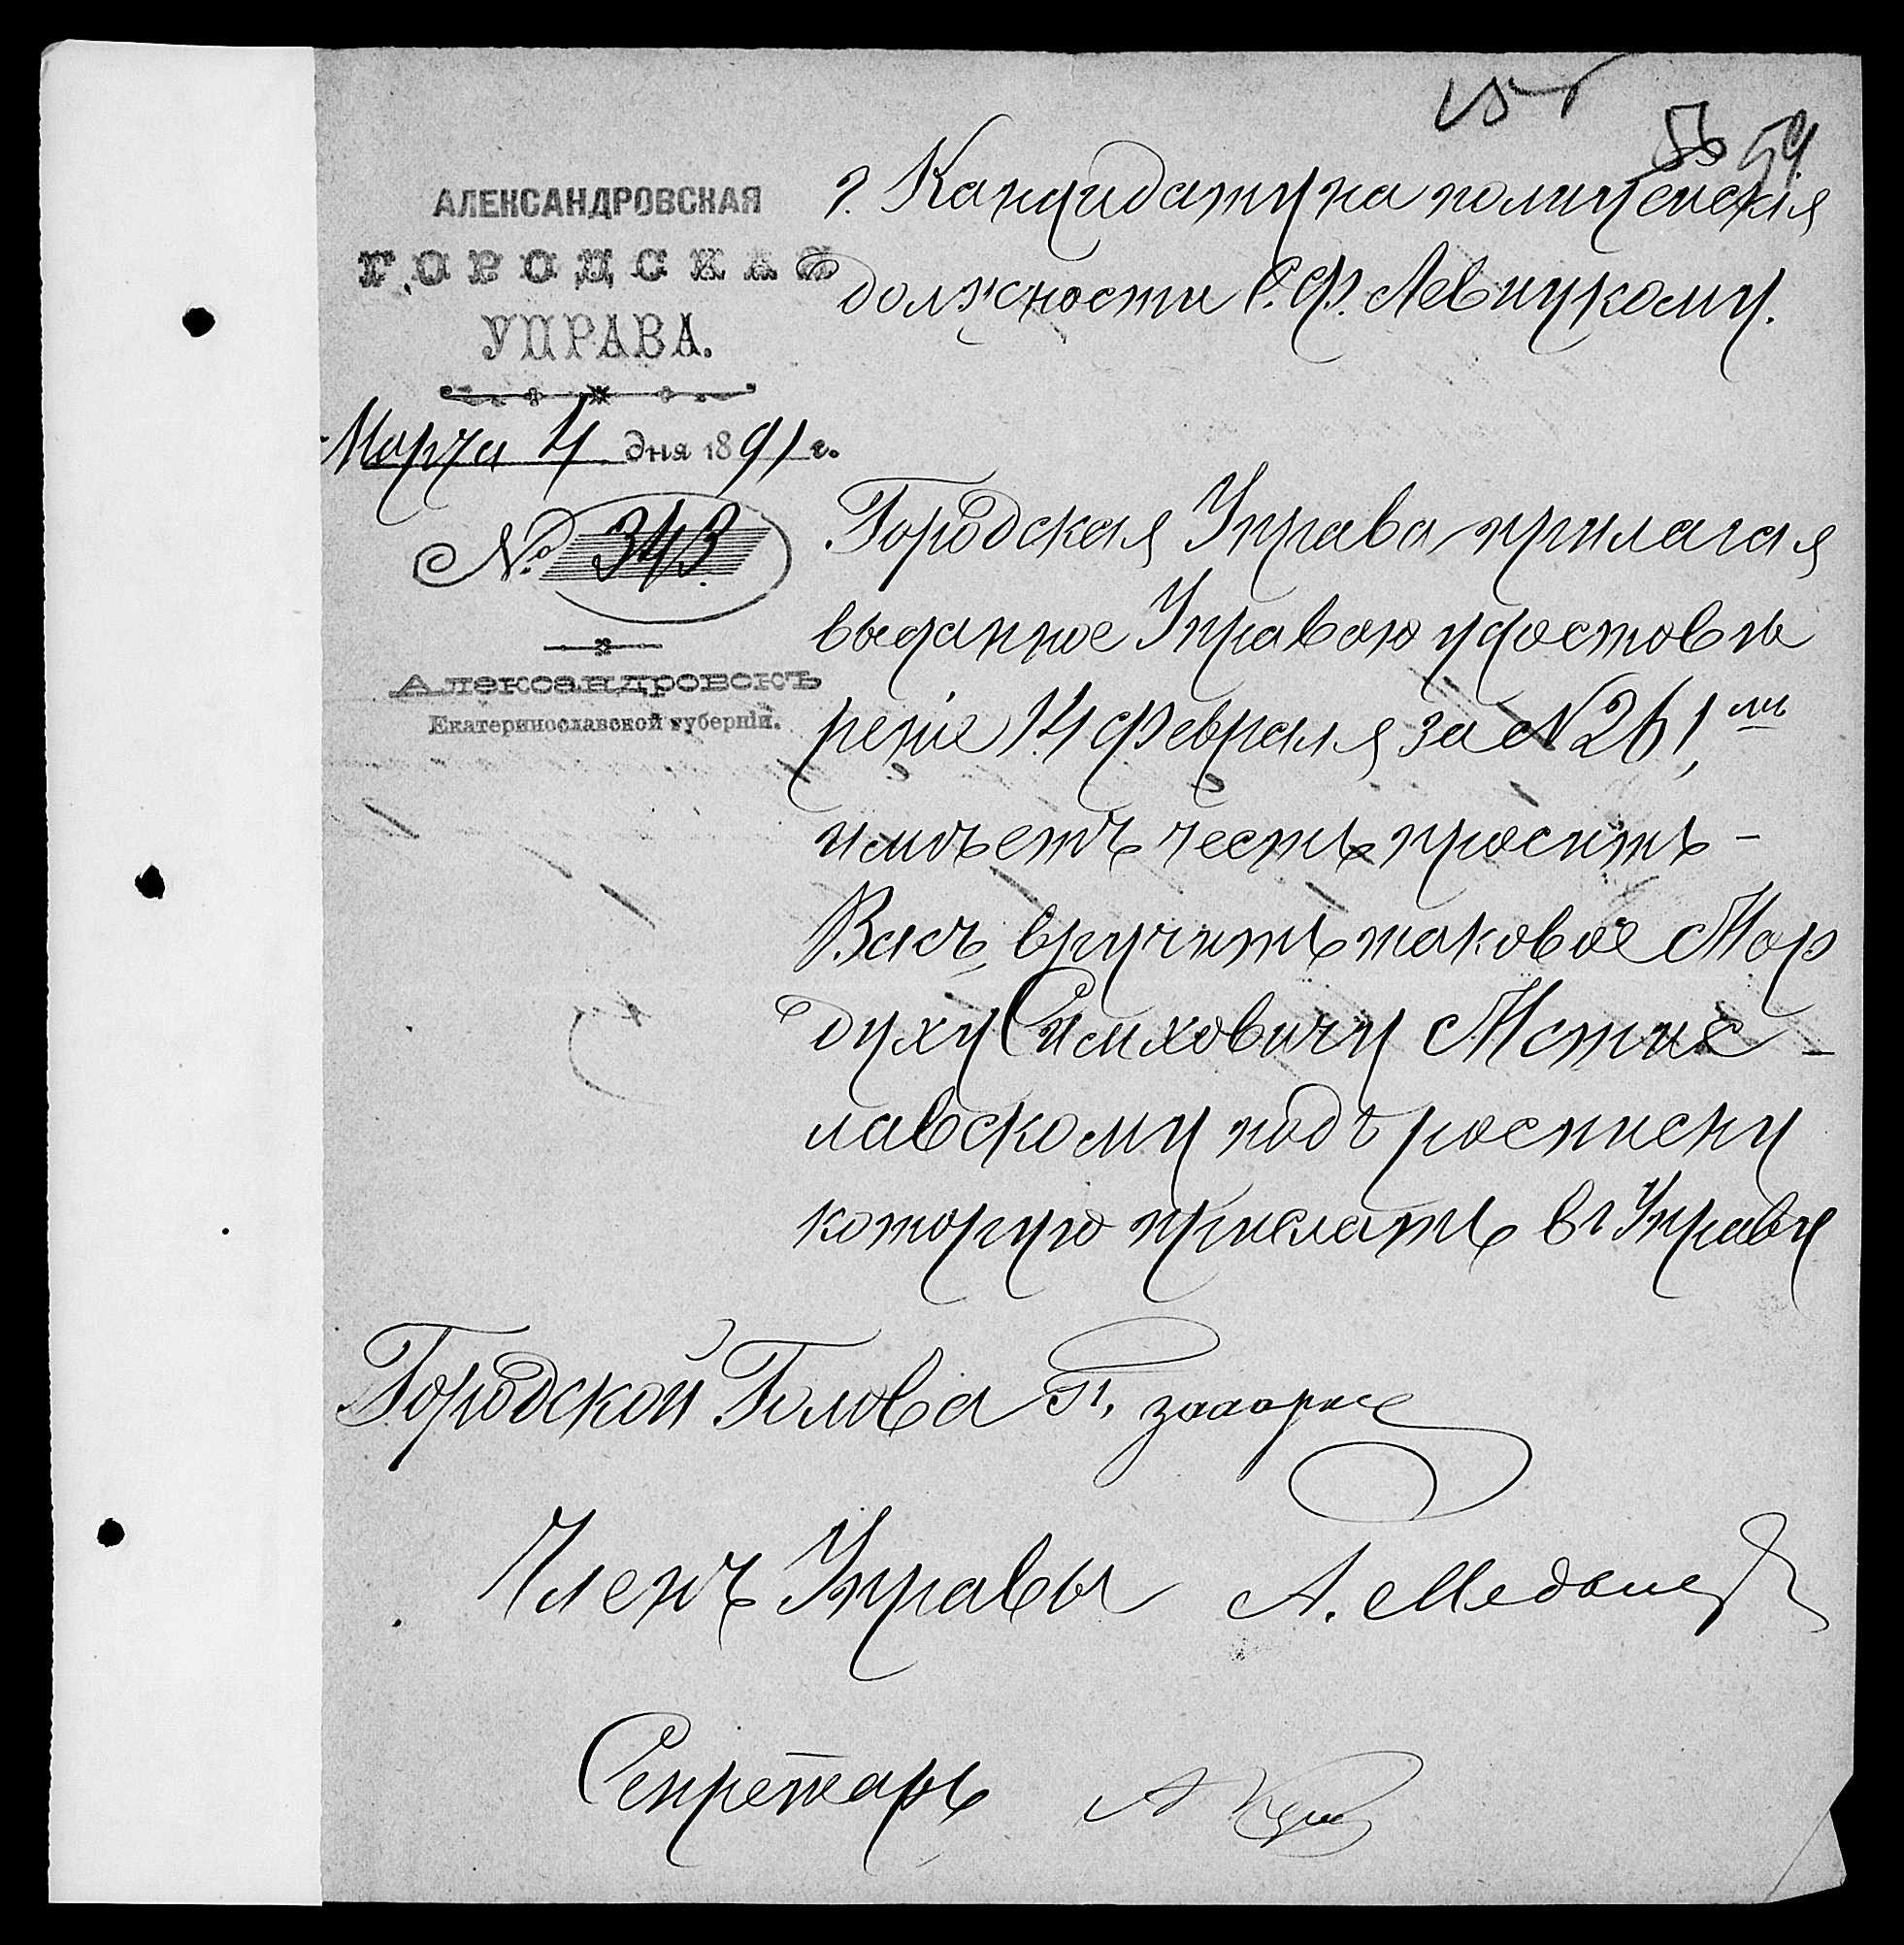 59
АЛЕКСАНДРОВСКАЯ
ГОРОДСКАЯ
УПРАВА.
Марта 4 дня 1891 г.
№ 343.
Александровскъ
Екатеринославской губерніи.
г. Кандидату на полицейскія
должности С. Ф. Левицкому.
Городская Управа прилагая
выданное Управою удостовѣ
реніе 14 февраля за № 261,
имѣетъ честь просить –
Васъ, вручить таковое Мор
духу Симховичу Мстис –
лавскому подъ росписку
которую прислать въ Управу
Городской Голова
Членъ Управы А.
Секретарь А